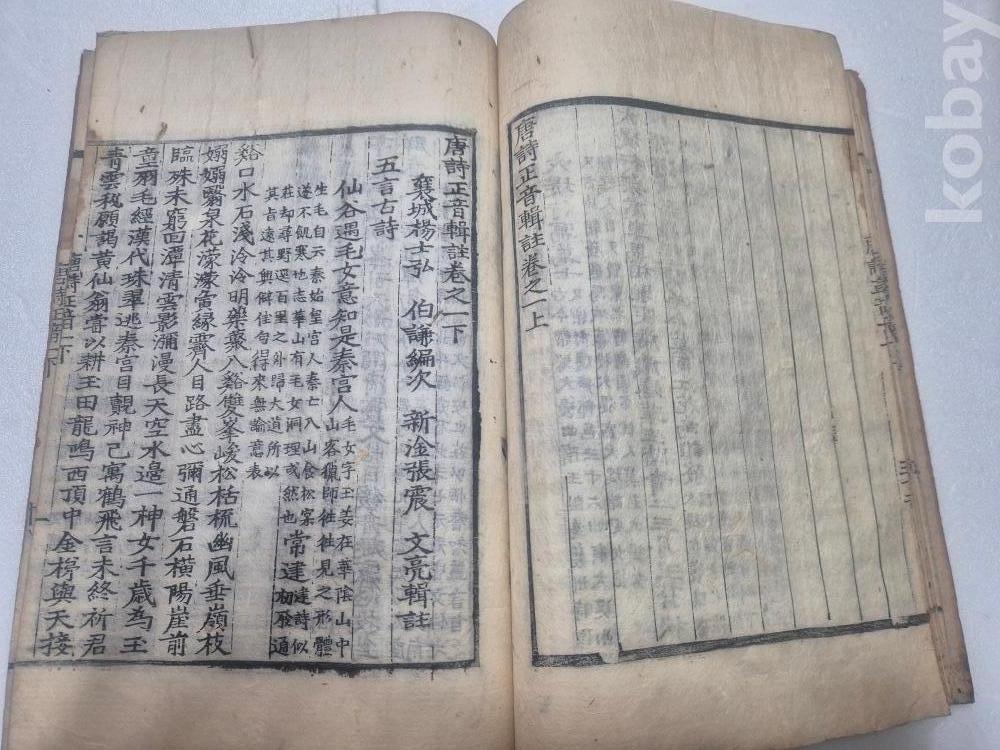 唐詩正音輯註卷之一上
唐詩正音輯註卷之一下
襄城楊士弘 伯謙編次 新淦張震 文亮輯註
五言古詩
仙谷遇毛女意知是秦宮人
毛女字玉姜在華陰山中
山客獵師徃徃見之形體
生毛自云秦始皇宮人秦亡入山食松
遂不飢寒地志華山有毛女洞理或然也
常建
建詩似
初發通
莊却尋野逕百里之外歸大道所以
其旨遠其興僻佳句得來無論意表
谿口水石淺泠泠明藥叢入谿雙峯峻松枯梳幽風垂嶺枝
嫋嫋翳泉花濛濛夤緣霽人目路盡心彌通磐石橫陽崖前
臨殊未窮回潭清雲影瀰漫長天空水邊一神女千歲為玉
童羽毛經漢代珠翠逃秦宮目覿神已寓鶴飛言未終祈君
青雲秘願謁黃仙翁嘗以耕玉田龍鳴西頂中金梯與天接
唐詩正音一下
kobay